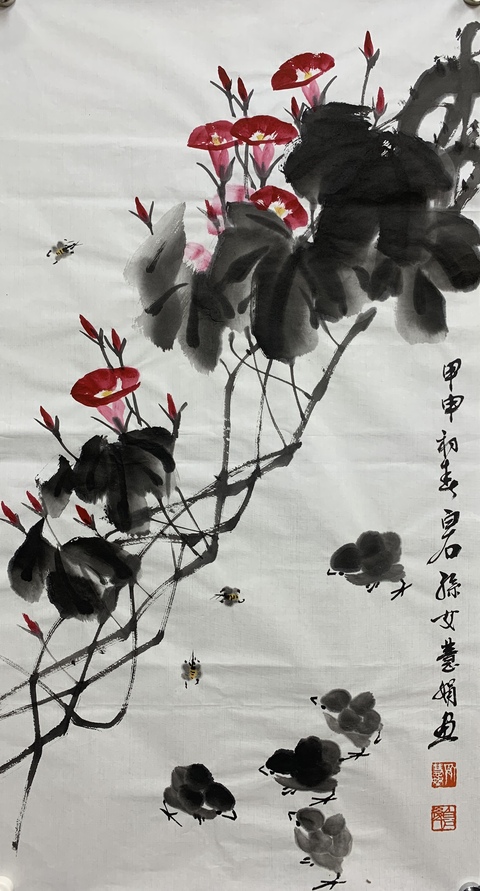 甲申初春白石孫女慧娟画